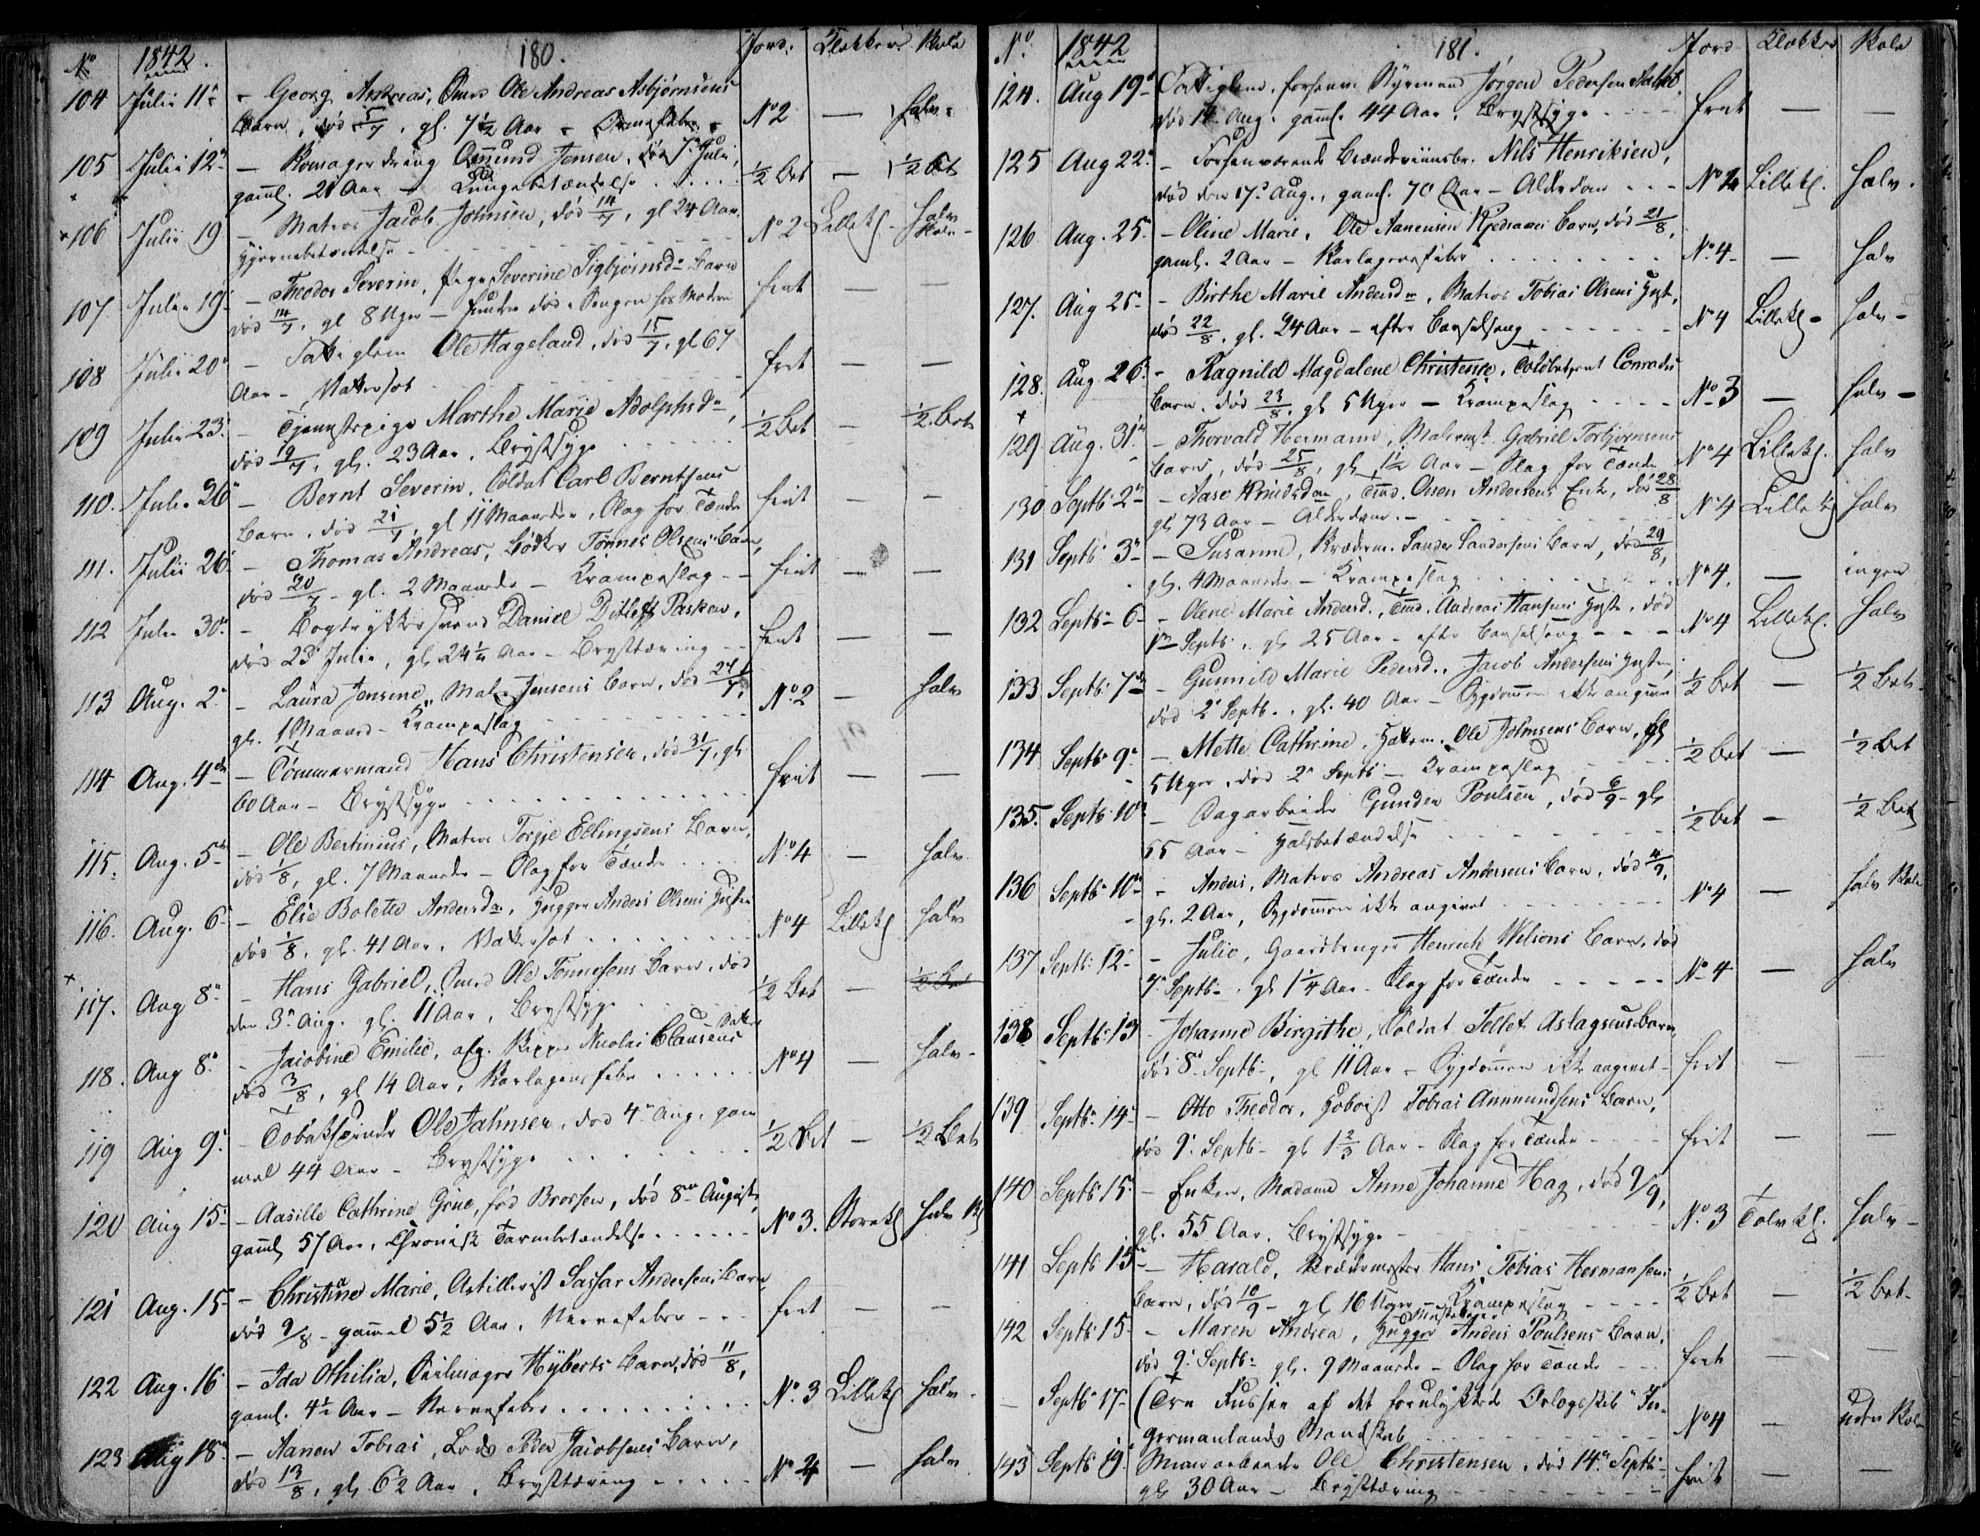 No 1842. 180. Jord. Klokker Kule
104 Julii 11te - Georg Andreas, Ole Andreas Asbjørnsens No 2 — halv
Barn, død 5/7, gl. 7½ Aar -
105 Julii 12te - dreng Jensen, død 7. Juli, ½ Bet — ½ Bet
gaml. 21 Aar - Lungebetændelse
106 Julii 19 - Matros Jacob Johnsen, død 14/7, gl 24 Aar. No 2 Lillekl. halv Kule
Hjernebetændelse
107 Julii 19 - Theodor Severin, Pige Severine Sigbjørnsdr Barn frit — —
død 14/7, gl 8 Uger - funden død i Sengen hos Moderen
108 Julii 20 - Fattiglem Ole Hageland, død 15/7, gl 67 frit — —
Aar - Vattersot
109 Julii 23. - Tjenestepige Marthe Marie Adolphsdr, ½ Bet — ½ Bet
død 19/7, gl. 23 Aar, Brystsyge
110. Julii 26 - Bernt Severin, Soldat Carl Berntsens frit — —
Barn, død 21/7, gl 11 Maaneder, Slag for Tænder
111. Julii 26 - Thomas Andreas, Bødker Tønnes Olsens Barn, frit — —
død 20/7 - gl. 2 Maaneder - Krampeslag
112 Julii 30 - Bogtrykkersvend Daniel Ditlef Paskou, frit — —
død 23 Julii, gl. 24½ Aar - Brysttæring
113 Aug. 2 - Laura Jensine, Mat. Jensens Barn, død 27/7, No 2 — halv
gl. 1 Maaned - Krampeslag
114 Aug. 4de - Tømmermand Hans Christensen, død 31/7, gl. frit — —
60 Aar - Brystsyge
115. Aug. 5te - Ole Bertinius, Matros Torje Ellingsens Barn, No 4 — halv
død 1/8, gl. 7 Maaneder - Slag for Tænder
116. Aug. 6 - Elie Bolette Andersdr, Hugger Anders Olsens Hustru No 4 Lillekl halv
død 1/8, gl. 41 Aar, Vattersot
117. Aug 8 - Hans Gabriel, Ole Tønnesens Barn, død ½ Bet — ½ Bet
den 3 Aug. gl. 11 Aar, Brystsyge
118. Aug 8 - Jacobine Emilie, afg. Skipper Nicolai Clausens Datter No 4 — halv
død 3/8, gl 14 Aar, Skarlagensfeber
119 Aug 9 - Tobakspinder Ole Jahnsen, død 4 Aug. gam ½ Bet — ½ Bet
mel 44 Aar - Brystsyge
120 Aug 15 - Aasille Cathrine Grue, fød Brorsen, død 8de August, No 3. Storekl halv Kl
gaml 57 Aar, Chronisk Tarmbetændelse
121 Aug. 15 - Christine Marie, Artillerist Andersens Barn, frit — —
død 9/8 - gammel 5½ Aar, Nervefeber
122 Aug. 16 - Ida Othilia, Seilmager Hyberts Barn, død 11/8, No 3 Lillekl halv
gaml. 4½ Aar - Nervefeber
123 Aug 18 - Aanen Tobias, Lods Peder Jacobsens Barn, No 4 — halv
død 13/8, gl. 6½ Aar, Brysttæring
No 1842 181. Jord Klokker Kule
124. Aug 19 - Fattiglem, forhenv. Styrmand Jørgen Pedersen frit — —
død 14 Aug. gaml. 44 Aar, Brystsyge
125 Aug 22. - Forhenværende Brændeviinsbr. Nils Henriksen, No 4 Lillekl. halv.
død den 17de Aug., gaml. 70 Aar - Alderdom
126 Aug. 25 - Oline Marie, Ole Aanensen Barn, død 21/8, No 4 — halv
gaml. 2 Aar - Skarlagensfeber
127. Aug 25 - Birthe Marie Andersdr, Matros Tobias Olsens Hust. No 4 Lillekl halv
død 22/8, gl. 24 Aar - efter Barselseng
128. Aug. 26 - Ragnild Magdalene Christense, Conradis No 3 — halv
Barn, død 23/8, gl 5 Uger - Krampeslag
129. Aug. 31 - Thorvald Hermann, Malermst. Gabriel Torbjørnsens No 4 Lillekl. halv
Barn, død 25/8, gl 1¼ Aar - Slag for Tænder
130 Septb. 2 - Aase Knudsdr, Tmd. Olsen Andersens Enke, død 28/8 No 4 Lillekl halv
gl 73 Aar - Alderdom
131 Septb 3 - Susanne, Skræderm. Sander Sandersens Barn, død 29/8, No 4. — ingen
gl. 4 Maaneder - Krampeslag
132 Septb 6 - Olene Marie Andersd., Tmd. Andreas Hansens Hust., død No 4 Lillekl. halv
1te Septb. gl 25 Aar - efter Barselseng
133 Septb. 7 - Gunnild Marie Pedersd., Jacob Andersens Hustru ½ bet — ½ Bet
død 2 Septb., gl. 40 Aar - Sygdommen ikke angiven
134 Septb 9 - Mette Cathrine, Ole Johnsens Barn, gl ½ bet — ½ Bet
5 Uger, død 2 Septb - Krampeslag
135. Septb 10 - Dagarbeider Gunder Poulsen, død 6/9 - gl ½ bet — ½ Bet
55 Aar - Halsbetændelse
136 Septb 10 - Anders, Matros Andreas Andersens Barn, død 4/9, No 4 — halv Kule
gl. 2 Aar, Sygdommen ikke angivet
137 Septb. 12 - Julie, Gaardbruger Henrich Wilsons Barn, død No 4 — halv
7 Septb. gl 1¼ Aar - Slag for Tænder
138 Septb. 13 - Johanne Birgithe, Soldat Tellef Aslagsens Barn, frit — —
død 8 Septb., gl 11 Aar - Sygdommen ikke angivet
139 Septb. 14 - Otto Theodor, Hoboist Tobias Ammundsens Barn, frit — —
død 9 Septb - gl 1⅔ Aar - Slag for Tænder
140 Septb 15. - Enken, Madame Anne Johanne Hag, død 9/9, No 3 Tolvkl. halv
gl. 55 Aar. Brystsyge
141 Septb 15 - Harald, Skrædermester Hans Tobias Hermansens ½ bet — ½ bet
Barn, død 10/9 - gl 16 Uger - Krampeslag
142 Septb. 15 - Maren Andrea, Hugger Anders Poulsens Barn, frit — —
død 9 Septb gl. 9 Maaneder - Slag for Tænder
— Septb 17 (Tre Russer af det forulykkede Orlogsskib "In- No 4 — uden Kule
germanlands Mandskab
143 Septb 19. Muurarbeider Ole Christensen, død 14 Septb frit — —
gl 30 Aar - Brysttæring